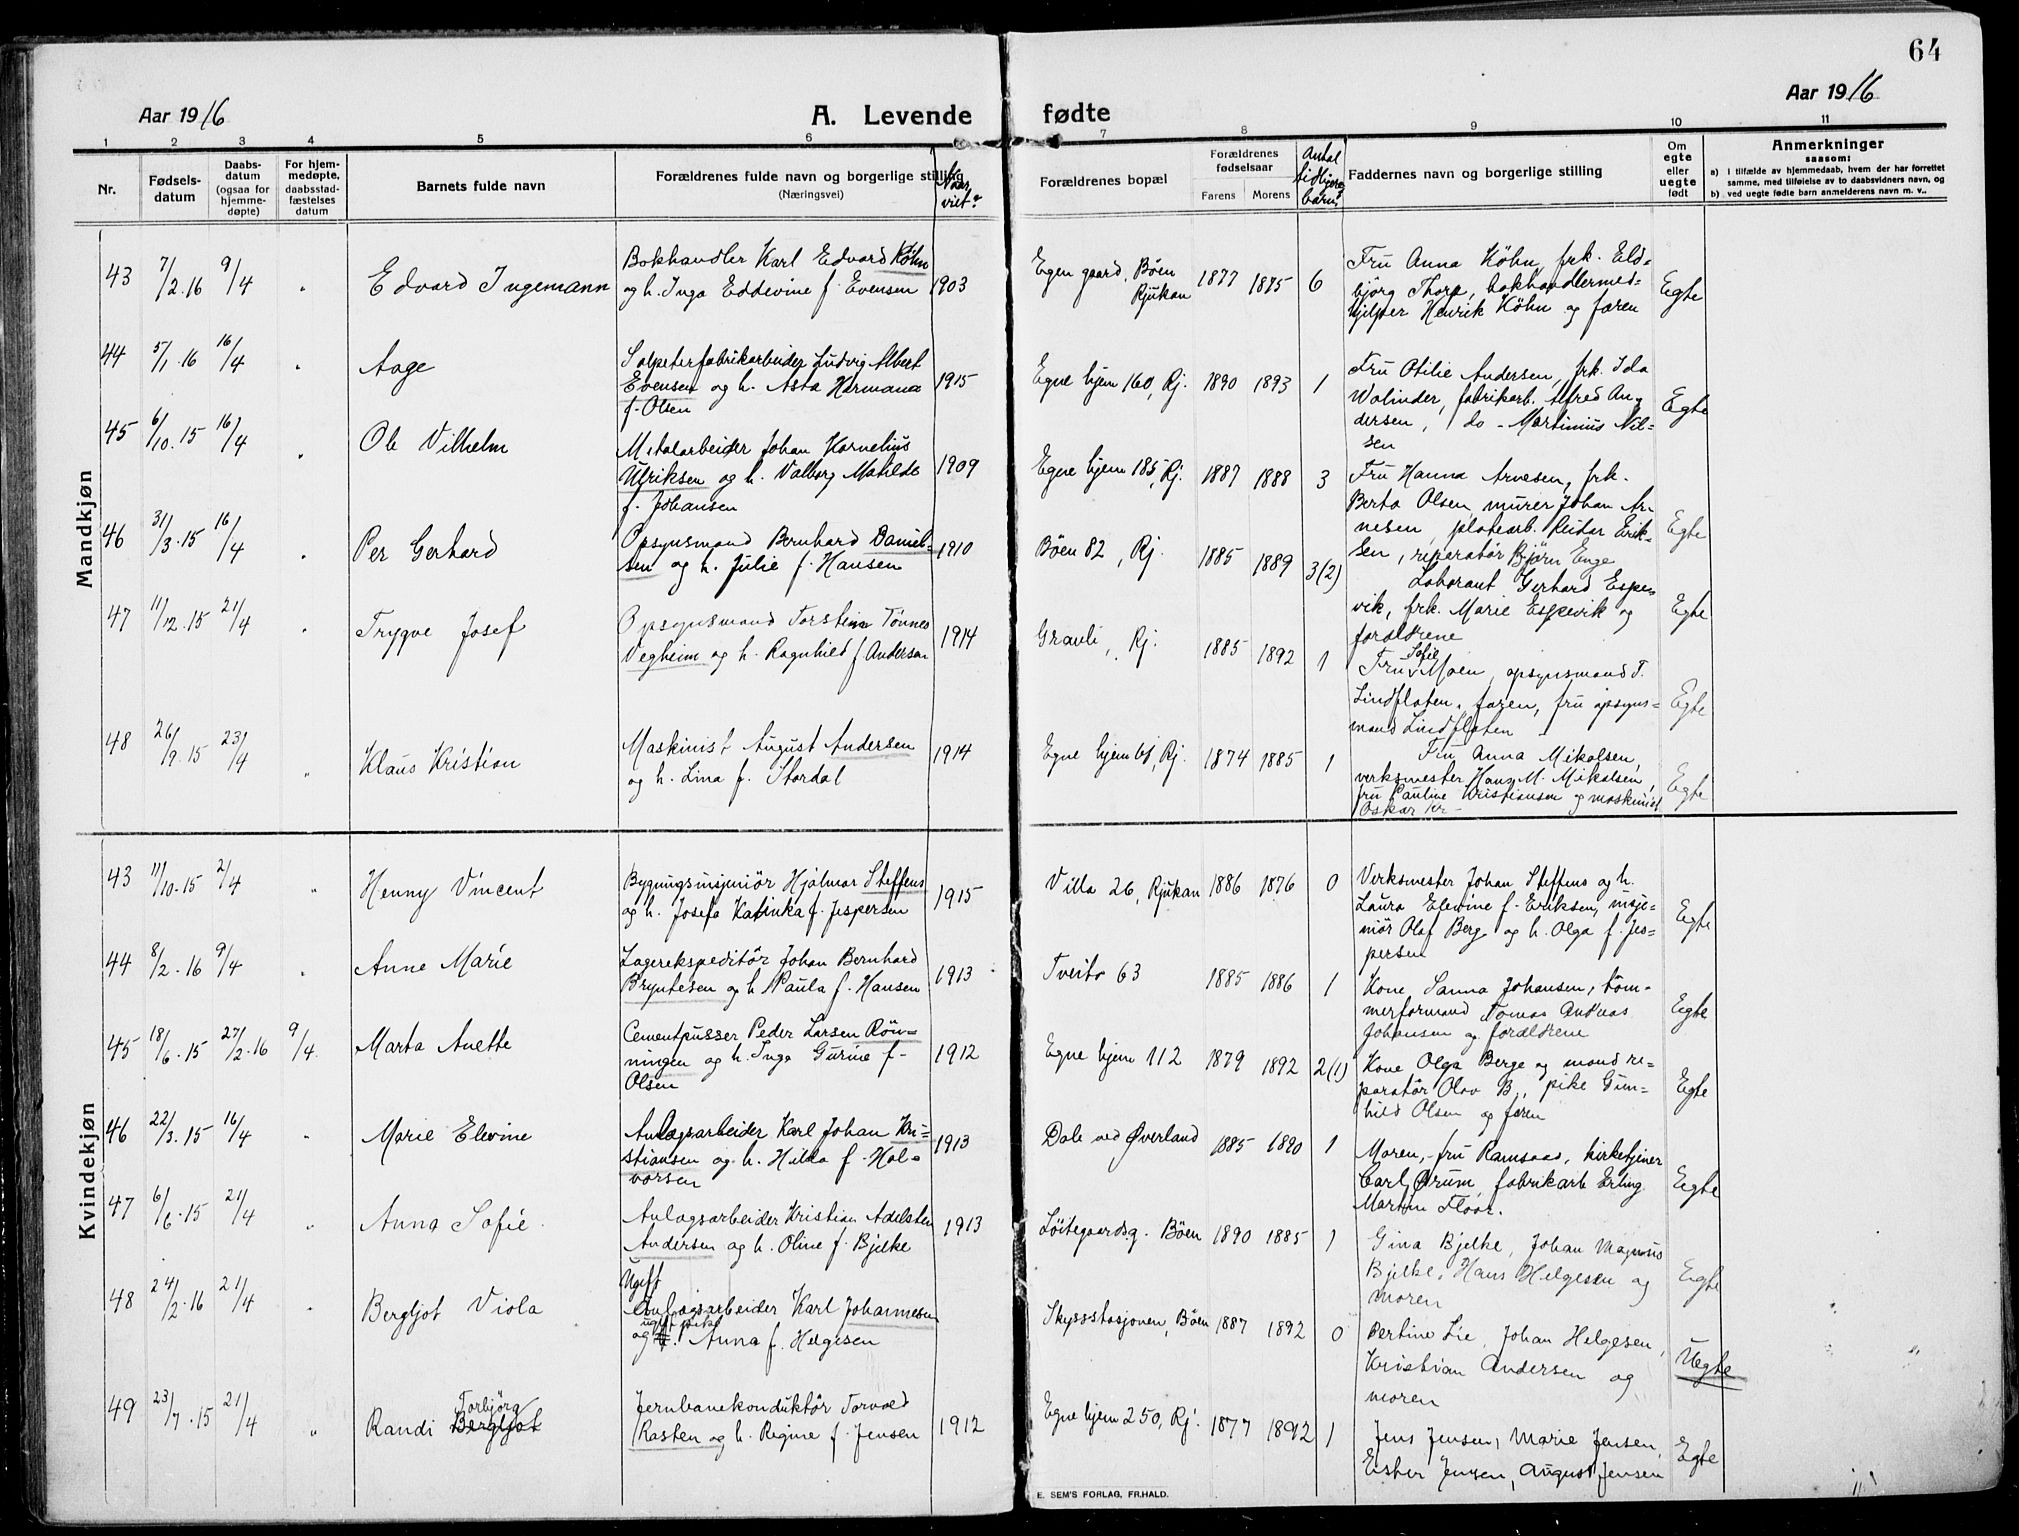 64
Aar 1916
A. Levende fødte
Aar 1916
1 2 3 4 5 6 7 8 9 10 11
Nr.
Fødsels-
datum
Daabs-
datum
(ogsaa for
hjemme-
døpte)
For hjem-
medøpte,
daabsstad-
fæstelses
datum
Barnets fulde navn
Forældrenes fulde navn og borgerlige stilling
(Næringsvei)
Naar
viet?
Forældrenes bopæl
Forældrenes
fødselsaar
Farens Morens
Antal
tidligere
barn?
Faddernes navn og borgerlige stilling
Om
egte
eller
uegte
født
Anmerkninger
saasom:
a) i tilfælde av hjemmedaab, hvem der har forrettet
samme, med tilføielse av to daabsvidners navn, og
b) ved uegte fødte barn anmelderens navn m. v..
Mandkjøn
43 7/2.16 9/4 " Edvard Ingemann
Bokhandler Karl Edvard Köhn
og h. Inga Eddevine f. Evensen 1903
Egen gaard, Böen
Rjukan
1877 1875 6
Fru Anna Köhn, frk. Eld-
bjorg Thorp, bokhandlermed-
hjelper Henrik Köhn og faren
Egte
44 5/1.16 16/4 " Aage
Salpeterfabrikarbeider Ludvig Albert
Evensen og h. Asta Hermana
f. Olsen
1915
Egne hjem 160, Rj. 1890 1893 1
Fru Otilie Andersen, frk. Ida
Wolinder, fabrikarb. Alfred An-
dersen, do - Martinius Nil-
sen
Egte
45 6/10.15 16/4 " Ole Vilhelm
Metalarbeider Johan Kornelius
Ulriksen og h. Valborg Matilde
f. Johansen
1909
Egne hjem 185, Rj. 1887 1888 3
Fru Hanna Arnesen, frk.
Berta Olsen, murer Johan Ar-
nesen, platearb. Reidar Erik-
sen, reparatör Björn Enge
Egte
46 31/3.15 16/4 " Per Gerhard
Opsynsmand Bernhard Daniel-
sen og h. Julie f. Hansen
1910
Böen 82, Rj. 1885 1889 3(2)
Laborant Gerhard Espe-
vik, frk. Marie Espevik og
forældrene
Egte
47 11/12.15 21/4 " Trygve Josef
Opsynsmand Torstein Tönnes
Vegheim og h. Ragnhild f. Andersen
1914
Graveli, Rj. 1885 1892 1
Fru Sofie Moen, opsynsmand T.
Lindfloten, faren, fru opsyns-
mand Lindfloten
Egte
48 26/9.15 23/4 " Klaus Kristian
Maskinist August Andersen
og h. Lina f. Stordal
1914
Egne hjem 61, Rj. 1874 1885 1
Fru Anna Mikalsen,
verksmester Hans M. Mikalsen,
fru Pauline Kristiansen og maskinist
Oskar Kr-
Egte
Kvindekjøn
43 11/10.15 2/4 " Henny Vincent
Bygningsinsjeniör Hjalmar Steffens
og h. Josefa Katinka f. Jespersen
1915
Villa 26, Rjukan 1886 1876 0
Verksmester Johan Steffens og h.
Laura Elevine f. Eriksen, insje-
niör Olaf Berg og h. Olga f. Jes-
persen
Egte
44 8/2.16 9/4 " Anne Marie
Lagerekspeditör Johan Bernhard
Bryntesen og h. Paula f. Hansen
1913
Tveito 63 1885 1886 1
Kone Sanna Johansen, töm-
merformand Tomas Andreas
Johansen og forældrene
Egte
45 18/6.15 27/2.16 9/4. Marta Anette
Cementpusser Peder Larsen Rön-
ningen og h. Inga Gurine f.
Olsen
1912
Egne hjem 112 1879 1892 2(1)
Kone Olga Berge og mand re-
paratör Olav B., pike Gun-
hild Olsen og faren
Egte
46 22/3.15 16/4 " Marie Elevine
Anlægsarbeider Karl Johan Kri-
stiansen og h. Hilda f. Hal-
vorsen
1913
Dale ved Øverland 1885 1890 1
Moren, fru Ramsaas, kirketjener
Carl Ørum, fabrikarb. Erling
Martin Floor.
Egte
47 6/6.15 21/4 " Anna Sofie
Anlægsarbeider Kristian Adelsten
Andersen og h. Oline f. Bjelke
1913
Löitegaardsg. Böen 1890 1885 1
Gina Bjelke, Johan Magnus
Bjelke, Hans Helgesen og
moren
Egte
48 24/2.16 21/4 " Bergljot Viola
Ugift
Anlægsarbeider Karl Johannesen
ugift pike
og h. Anna f. Helgesen
Skysstasjonen, Böen 1887 1892 0
Pertine Lie, Johan Helgesen,
Kristian Andersen og
moren
Uegte
49 23/7.15 21/4 " Randi Bergljot Torbjörg
Jernbanekonduktör Torvald
Rasten og h. Regine f. Jensen
1912
Egne hjem 250, Rj. 1877 1892 1
Jens Jensen, Marie Jensen,
Ester Jensen, August Jensen
Egte
E. SEM'S FORLAG, FR.HALD.